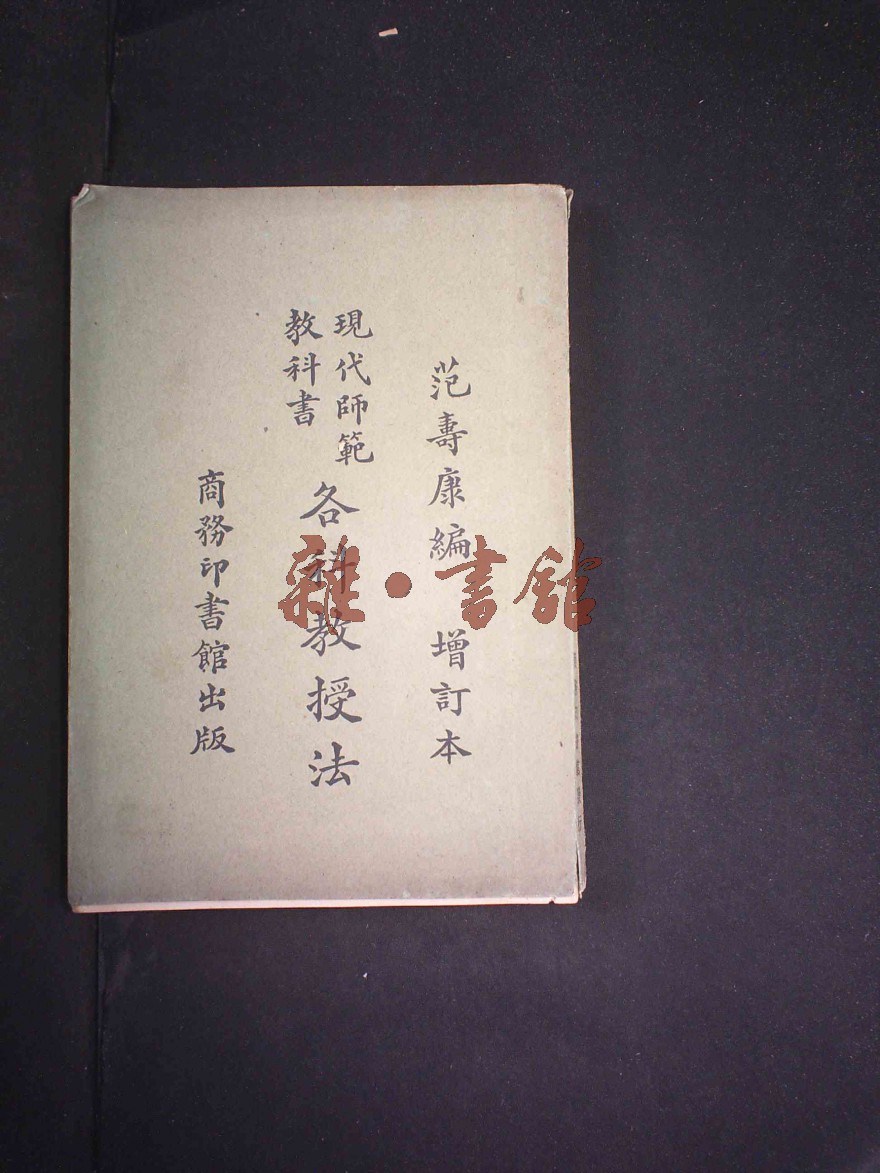 范壽康編　增訂本
現代師範
教科書
各科教授法
商務印書館出版
雜·書館